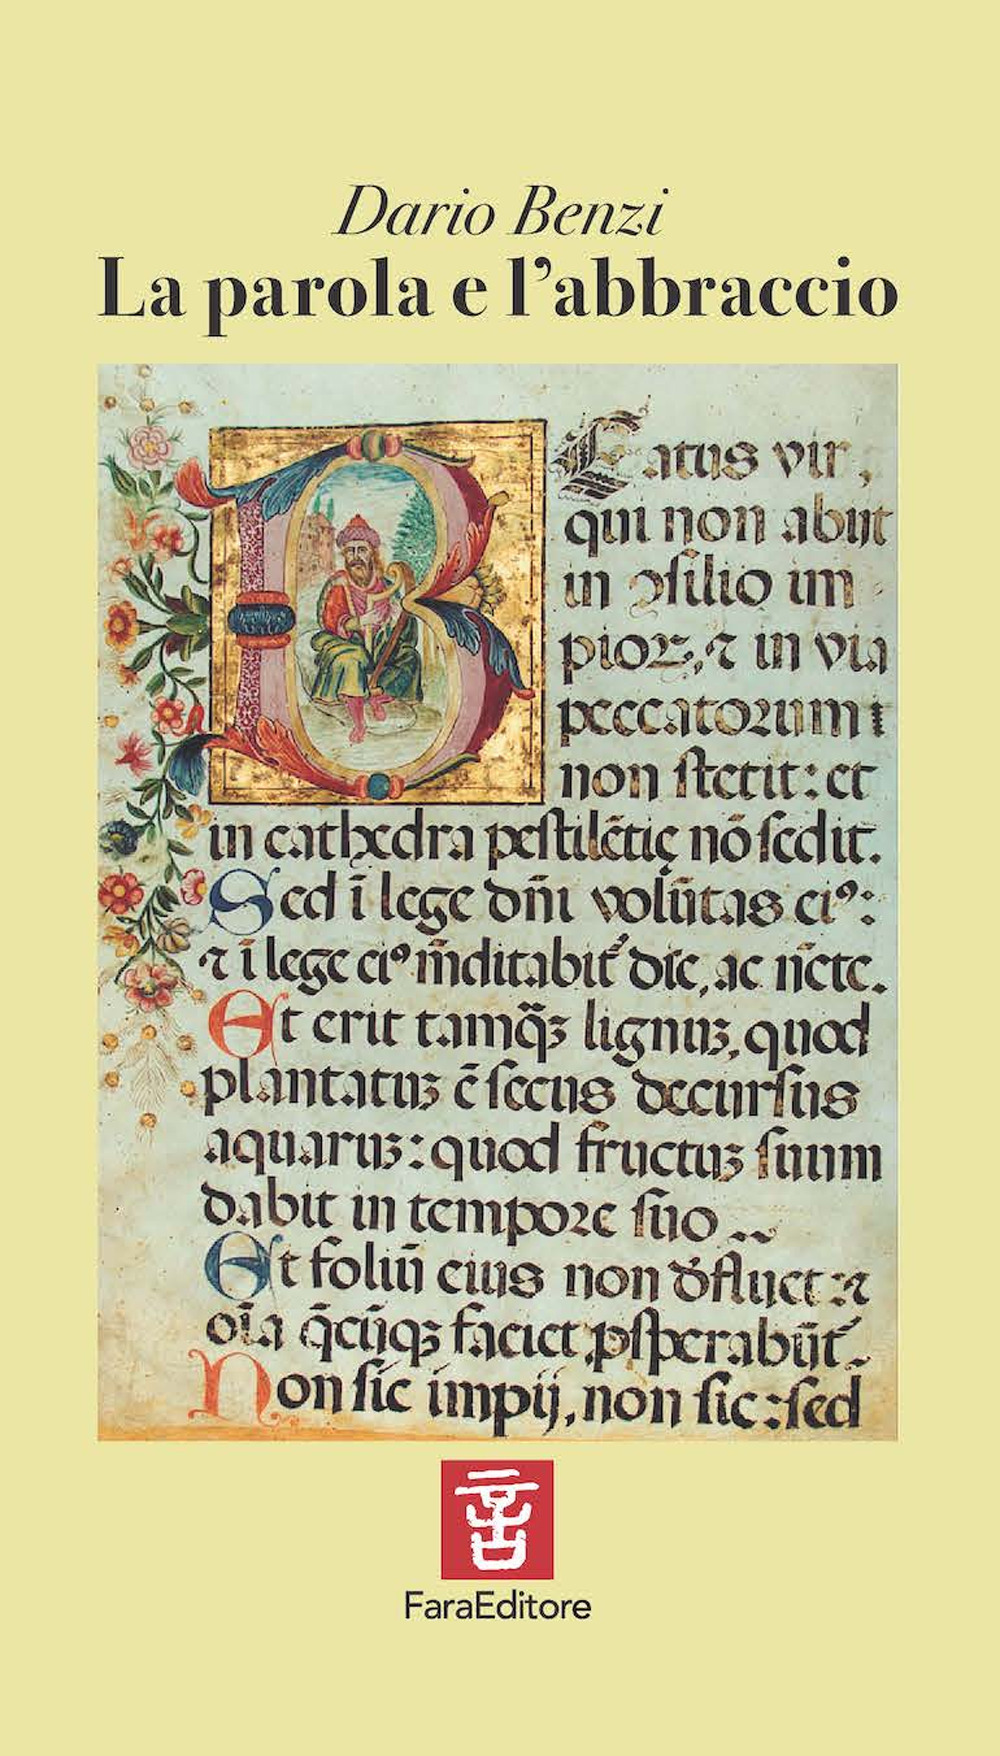 Dario Benzi
La parola e l’abbraccio
Beatus vir,
qui non abijt
in ꝯsilio im
pioꝝ, ⁊ in via
peccatorum
non stetit: et
in cathedra pestilētię nō sedit.
Sed ī lege dn̄i volūtas eiꝰ:
⁊ ī lege eiꝰ m̄ditabit᷑ die, ac n̄cte.
Et erit tamq̄ꝫ lignuꝫ, quod
plantatuꝫ ē secus decursus
aquaruꝫ: quod fructuꝫ suum
dabit in tempore suo
Et foliū eius non defluet: ⁊
oīa q̄cūqꝫ faciet ꝓsperabūt᷑.
Non sic impij, non sic: sed
言
FaraEditore